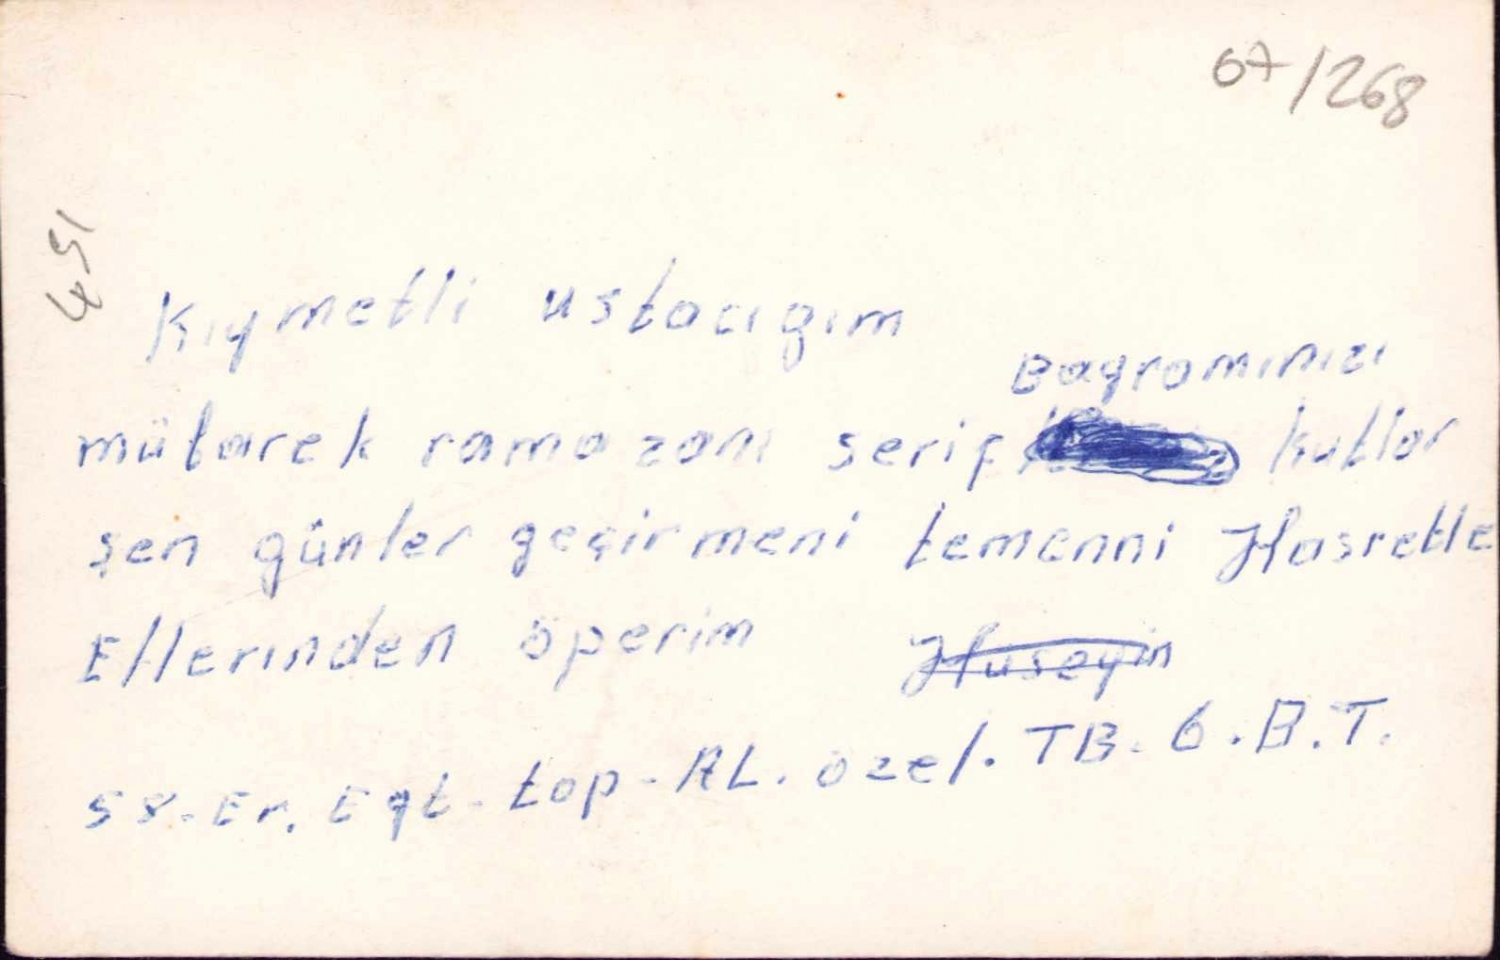 67/268
154
Kıymetli ustacıgım
Bayramınızı
mübarek ramazanı serif kutlar
şen günler geçirmeni temenni Hasretle
Ellerinden öperim Huseyin
58. Er. Eğt. top. AL. özel. TB. 6. B.T.